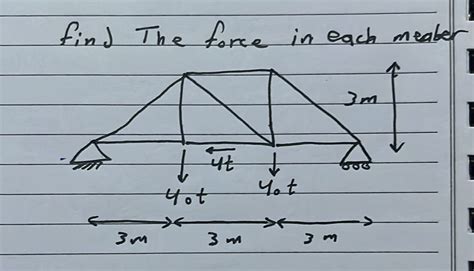 find The force in each member
3m
4t
40t 40t
3m 3m 3m